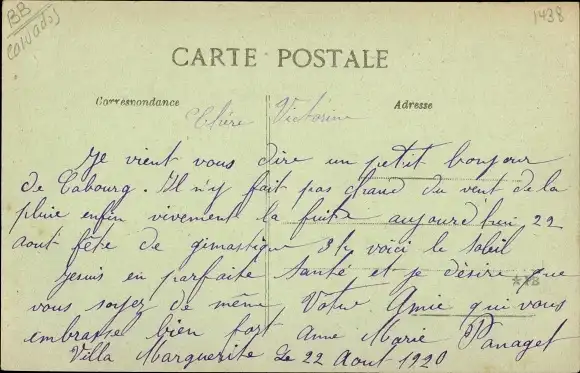 BB
Calvados
1438
CARTE POSTALE
Correspondance
Adresse
Chère Victorine
Je vient vous dire un petit bonjour
de Cabourg. Il n'y fait pas chaud du vent de la
pluie enfin vivement la fuite aujourd'hui 22
aout fête de gimastique voici le soleil
Jesuis en parfaite santé et je désire que
vous soyez de même Votre Amie qui vous
embrasse bien fort Anne Marie Panaget
Villa Marguerite Le 22 Aout 1920